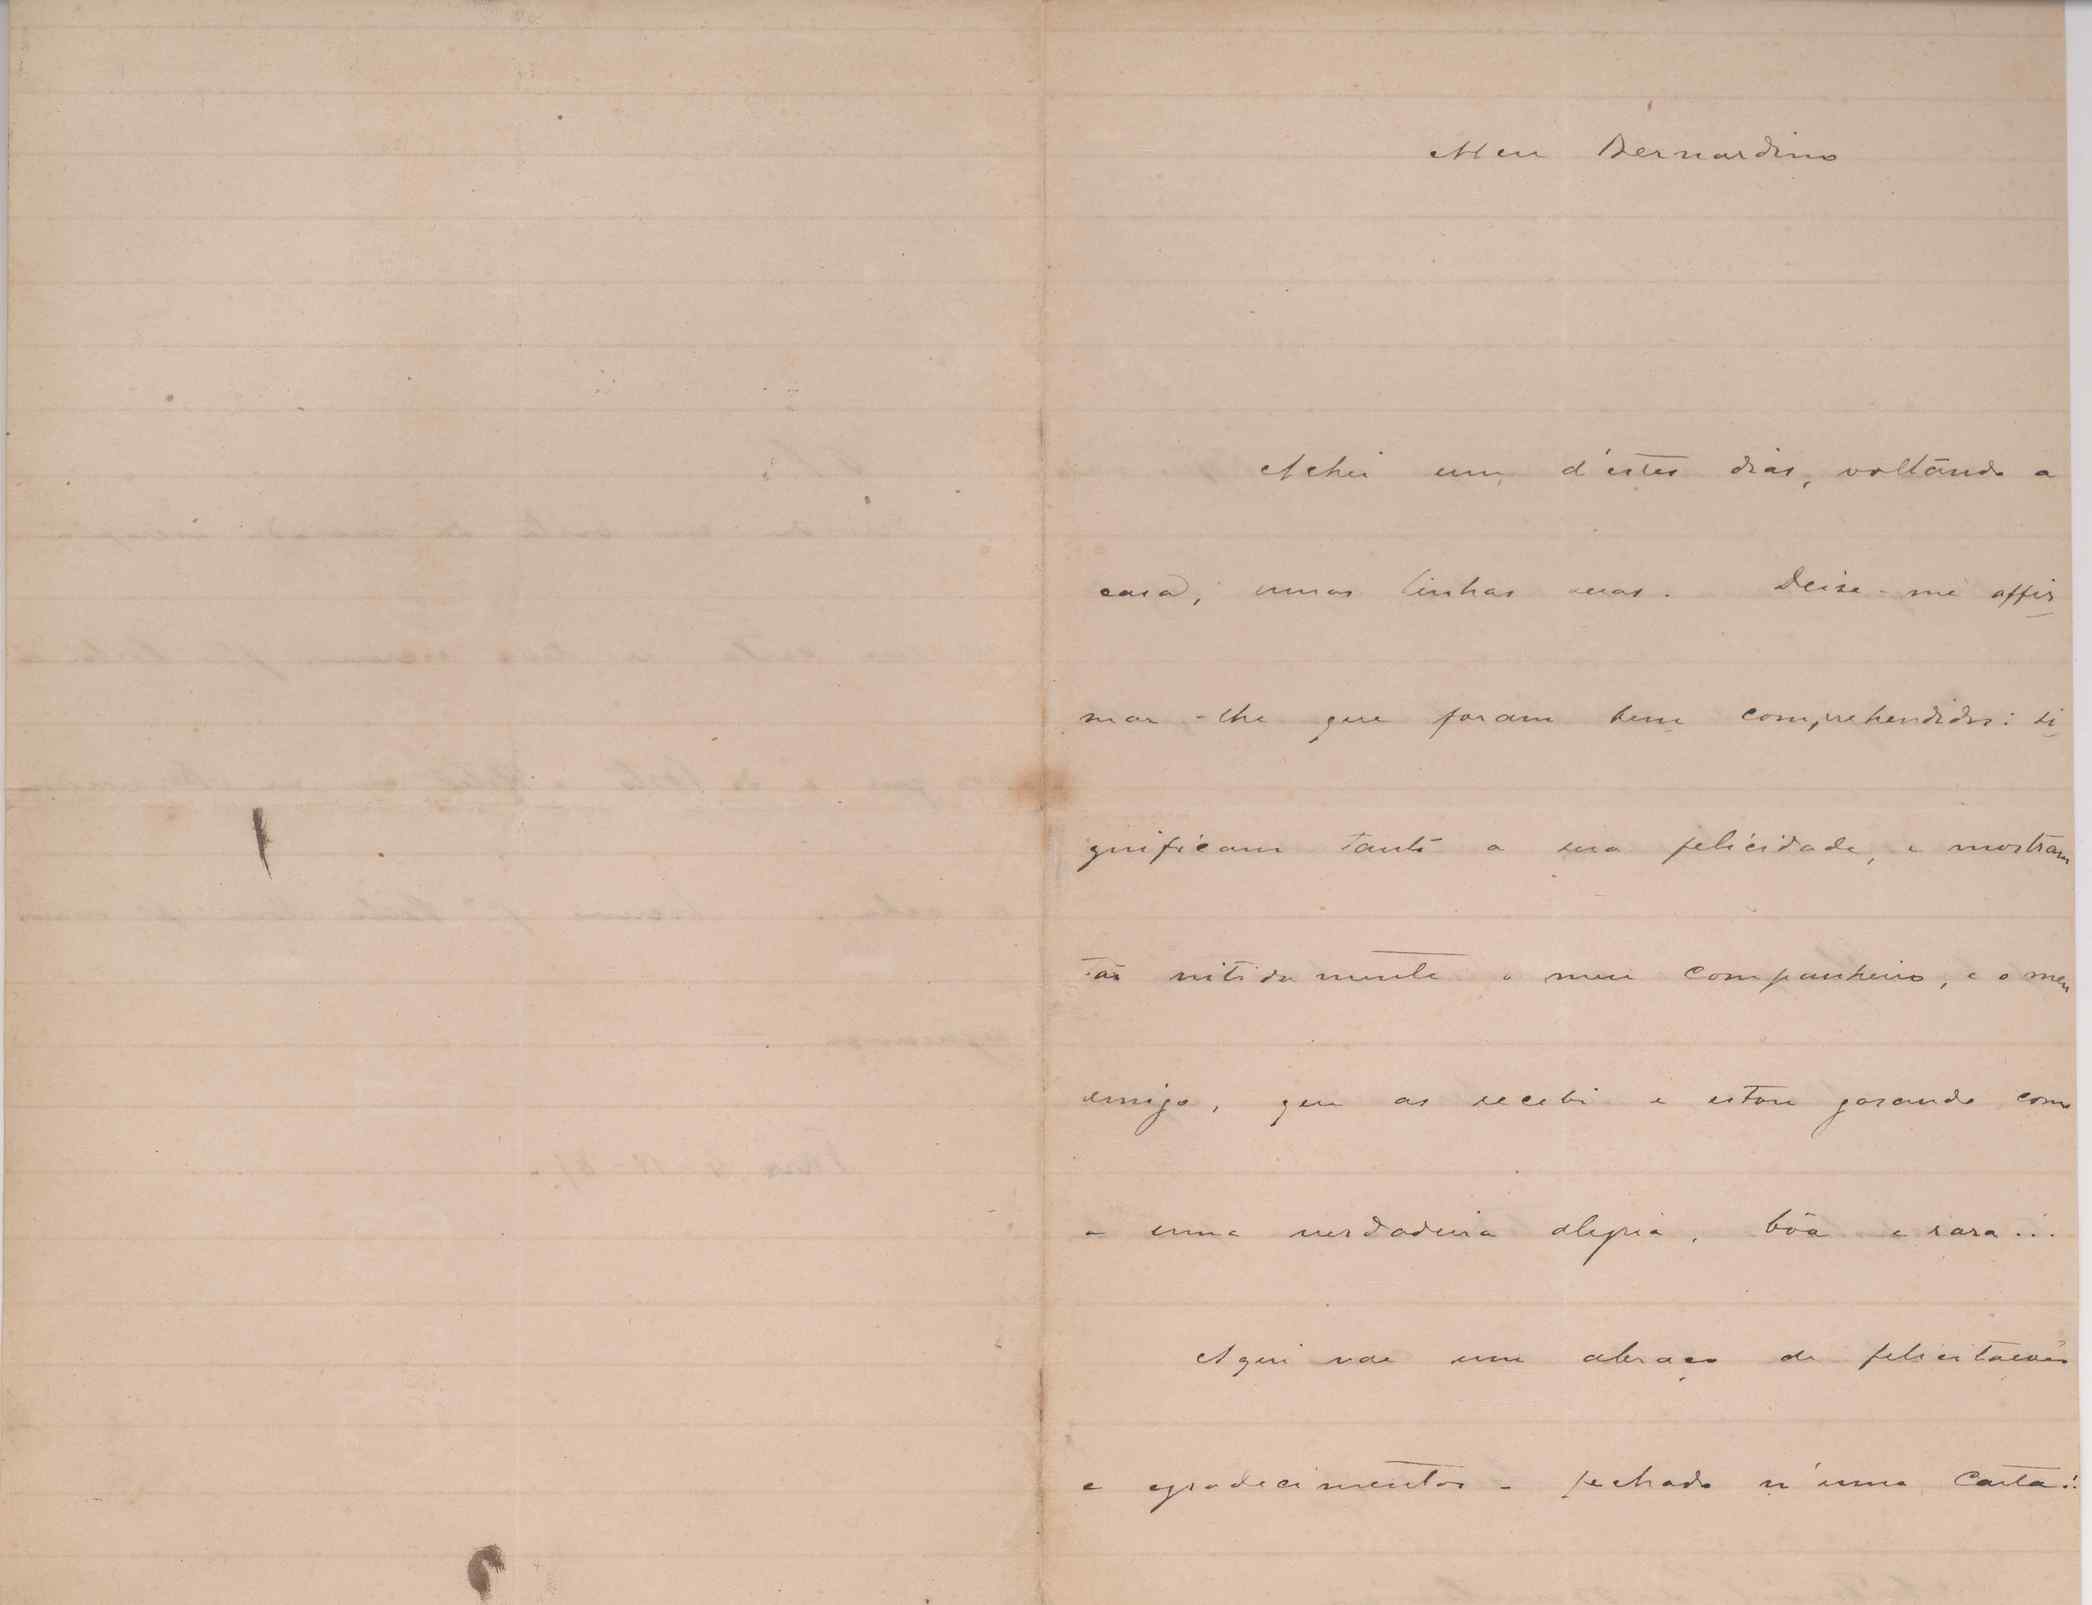 Meu Bernardino
Achei um d'estes dias, voltando a
casa, umas linhas suas. Deixe-me affir
mar-lhe que foram bem comprehendidas: si
gnificam tanto a sua felicidade, e mostram
tão nitidamente o meu companheiro, e o meu
amigo, que as recebi e estou gosando com
uma verdadeira alegria, bôa e rara...
Aqui vae um abraço de felicitações
e agradecimentos - fechado n'uma carta: